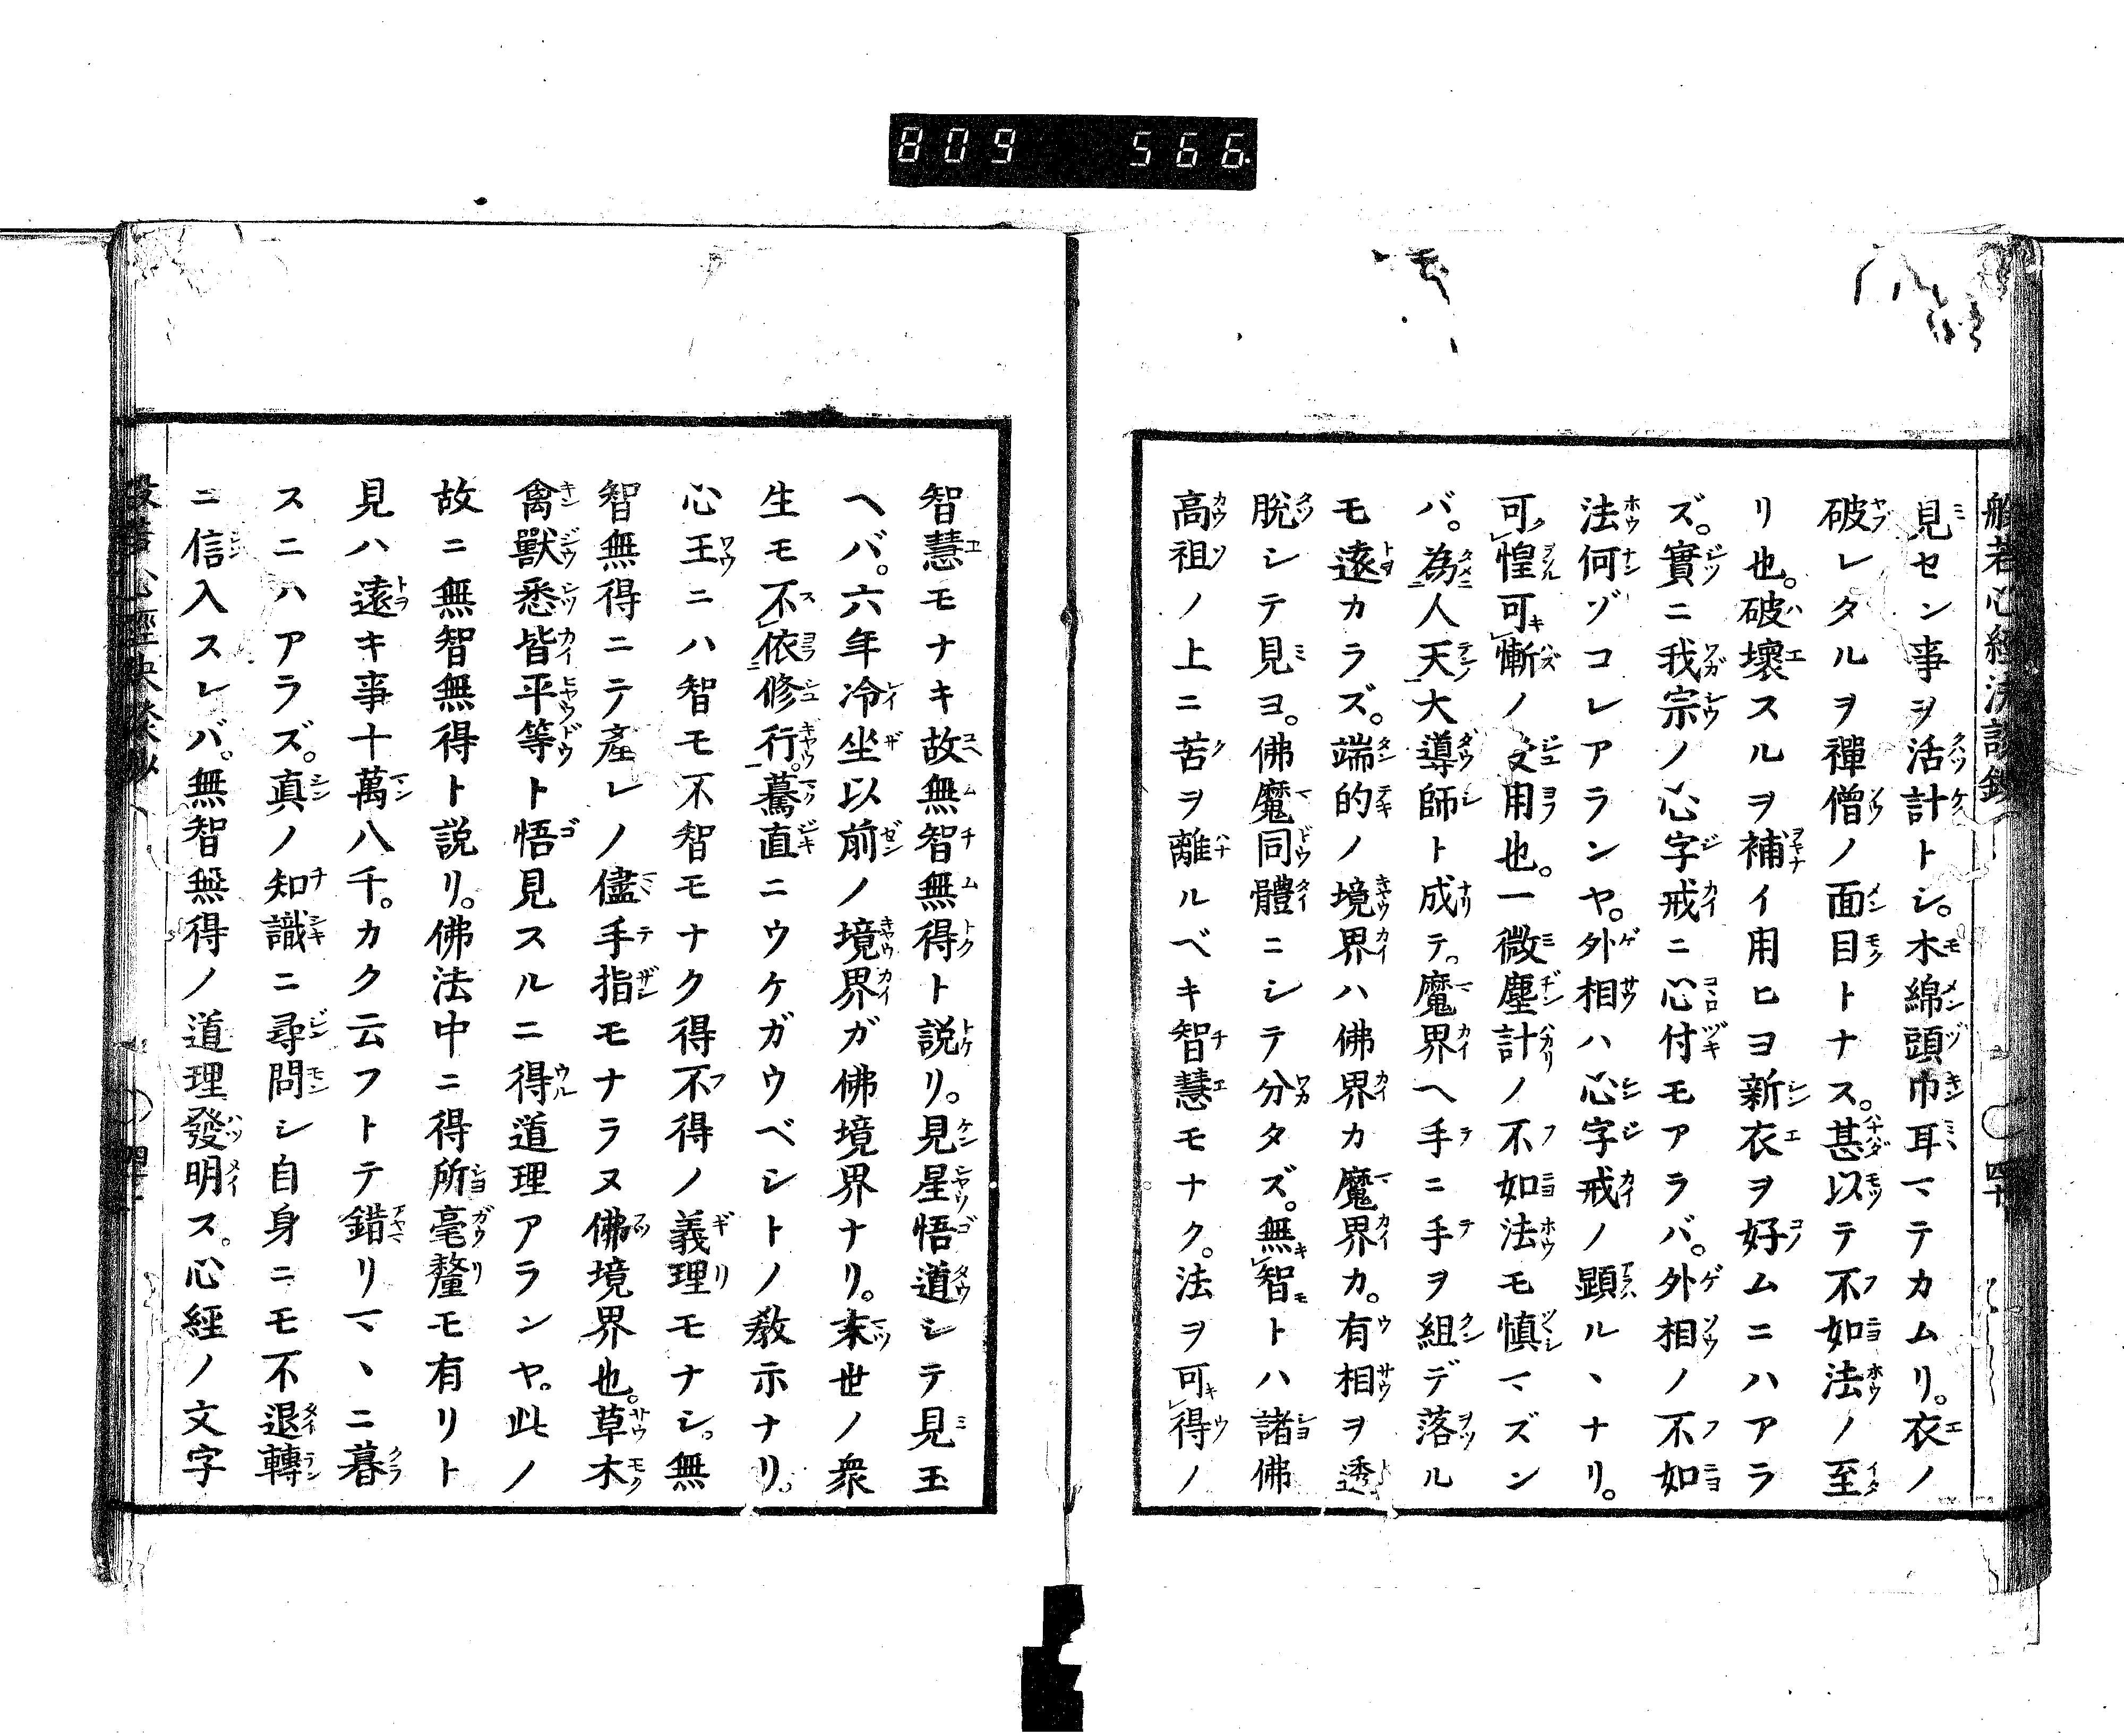 809 566
見セン事ヲ活計トシ。木綿頭巾耳マテカムリ。衣ノ
破レタルヲ禪僧ノ面目トナス。甚以テ不如法ノ至
リ也。破壞スルヲ補イ用ヒヨ新衣ヲ好ムニハアラ
ズ。實ニ我宗ノ心字戒ニ心付モアラバ。外相ノ不如
法何ゾコレアランヤ。外相ハ心字戒ノ顕ルヽナリ。
可惶可慚ノ受用也。一微塵計ノ不如法モ慎マズン
バ。為人天大導師ト成テ。魔界ヘ手ニ手ヲ組デ落ル
モ遠カラズ。端的ノ境界ハ佛界カ魔界カ。有相ヲ透
脱シテ見ヨ。佛魔同體ニシテ分タズ。無智トハ諸佛
高祖ノ上ニ苦ヲ離ルベキ智慧モナク。法ヲ可得ノ
智慧モナキ故無智無得ト説リ。見星悟道シテ見玉
ヘバ。六年冷坐以前ノ境界ガ佛境界ナリ。末世ノ衆
生モ不依修行。驀直ニウケガウベシトノ教示ナリ。
心王ニハ智モ不智モナク得不得ノ義理モナシ。無
智無得ニテ產レノ儘手指モナラヌ佛境界也。草木
禽獸悉皆平等ト悟見スルニ得道理アランヤ。此ノ
故ニ無智無得ト説リ。佛法中ニ得所毫釐モ有リト
見ハ遠キ事十萬八千。カク云フトテ錯リマヽニ暮
スニハアラズ。真ノ知識ニ尋問シ自身ニモ不退轉
ニ信入スレバ。無智無得ノ道理發明ス。心經ノ文字